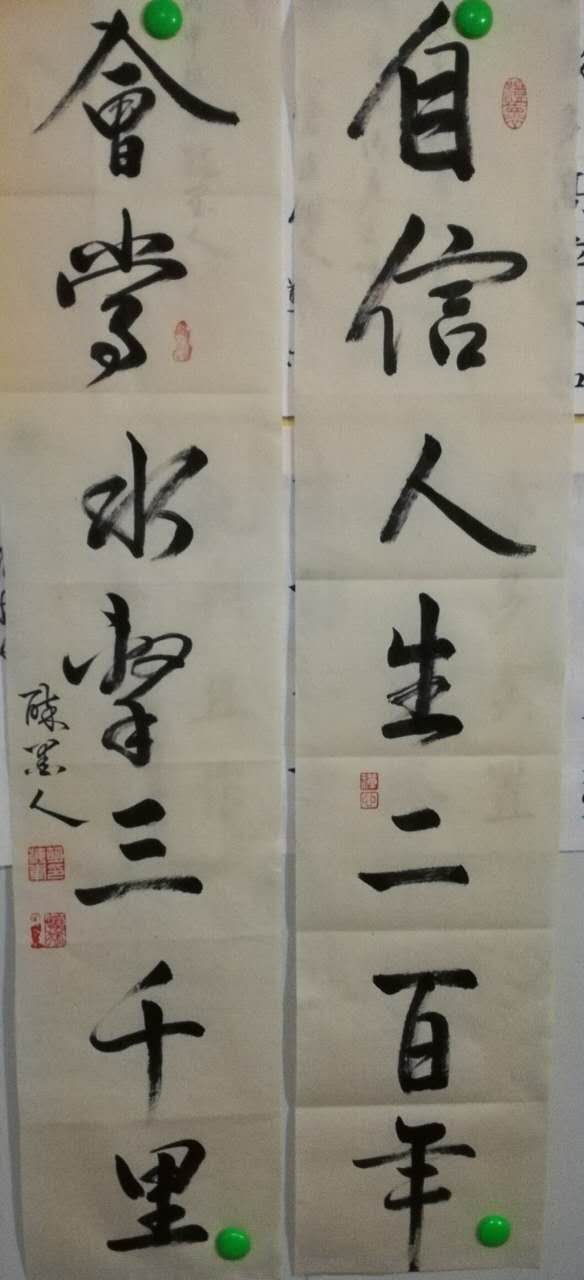 自信人生二百年
會當水擊三千里
醉墨人